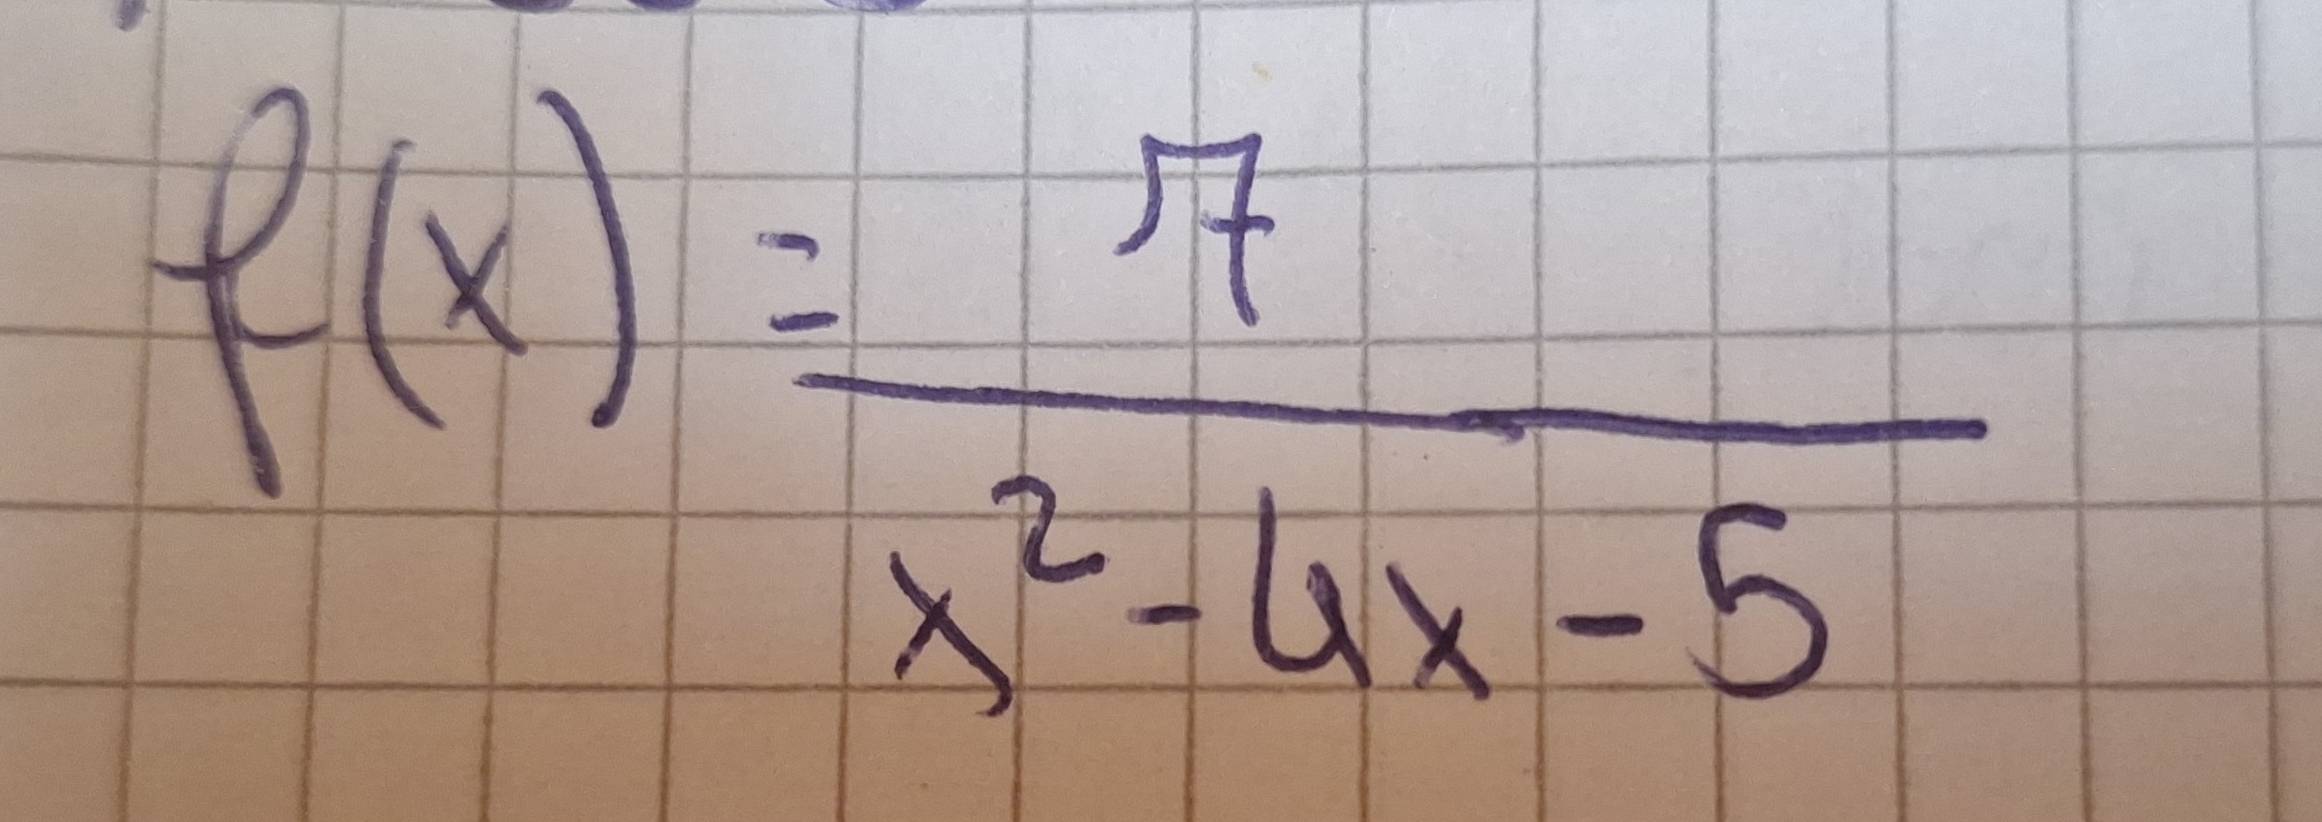 f(x) = 7 / (x² - 4x - 5)